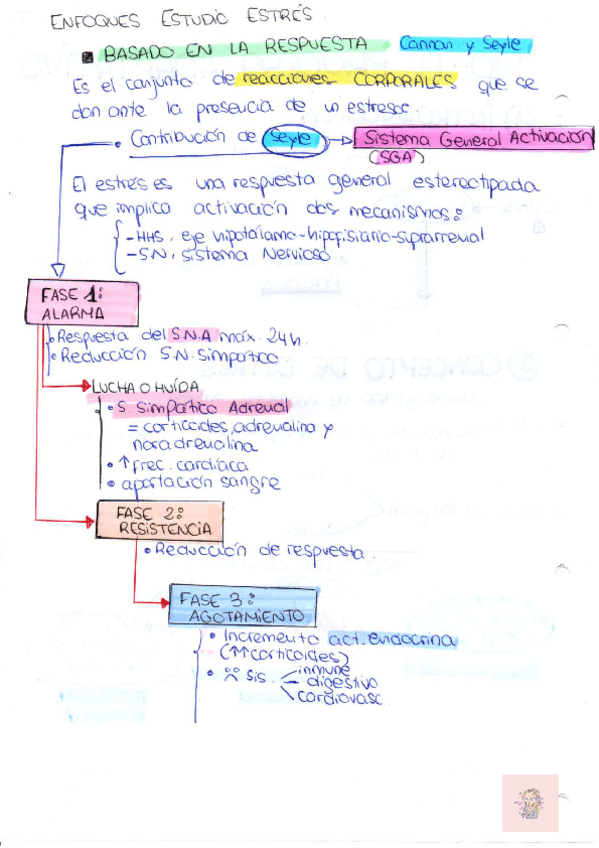 ENFOQUES ESTUDIO ESTRÉS.
BASADO EN LA RESPUESTA Cannon y Seyle
Es el conjunto de reacciones CORPORALES que se
dan ante la presencia de un estresor.
• Contribución de Seyle → Sistema General Activación
(SGA)
El estrés es una respuesta general estereotipada
que implica activación dos mecanismos:
- HHS. eje hipotálamo-hipofisiario-suprarrenal
- SN. Sistema Nervioso
FASE 1:
ALARMA
• Respuesta del S.N.A máx. 24h.
• Reducción S.N. Simpático
LUCHA O HUÍDA
• S. Simpático Adrenal
= corticoides, adrenalina y
noradrenalina
• ↑ frec. cardíaca
• aportación sangre
FASE 2:
RESISTENCIA
• Reducción de respuesta.
FASE 3:
AGOTAMIENTO
• Incremento act. endocrina
(↑↑ corticoides)
• sis. inmune
digestivo
cardiovasc.